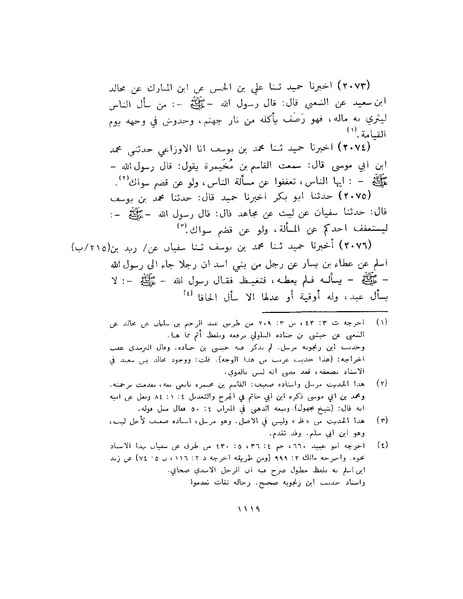 (٢٠٧٣) اخبرنا حميد ثنا علي بن الحسن عن ابن المبارك عن مجالد
ابن سعيد عن الشعبي قال: قال رسول الله -ﷺ -: من سأل الناس
ليثري به ماله، فهو رَضْف يأكله من نار جهنم، وخدوش في وجهه يوم
القيامة.(١)
(٢٠٧٤) اخبرنا حميد ثنا محمد بن يوسف انا الاوزاعي حدثني محمد
ابن ابي موسى قال: سمعت القاسم بن مُخَيمرة يقول: قال رسول الله -
ﷺ - : ايها الناس، تعففوا عن مسألة الناس، ولو عن قضم سواك(٢).
(٢٠٧٥) حدثنا ابو بكر اخبرنا حميد قال: حدثنا محمد بن يوسف
قال: حدثنا سفيان عن ليث عن مجاهد قال: قال رسول الله -ﷺ -:
ليستعفف احدكم عن المسألة، ولو عن قضم سواك.(٣)
(٢٠٧٦) أخبرنا حميد ثنا محمد بن يوسف ثنا سفيان عن/ زيد بن(٢١٥/ب)
اسلم عن عطاء بن يسار عن رجل من بني اسد ان رجلا جاء الى رسول الله
- ﷺ - يسأله فلم يعطه، فتغيظ فقال رسول الله - ﷺ -: لا
يسأل عبد، وله أوقية أو عدلها الا سأل الحافا (٤)
(١) اخرجه ت ٣: ٤٣، من طريق عبد الرحيم بن سليمان عن مجالد عن
الشعبي عن حبشي بن جنادة السلولي مرفوعا وبلفظ أتم مما هنا.
وحديث ابن زنجويه مرسل. لم يذكر فيه حبشي بن جنادة. وقال الترمذي عقب
اخراجه: (هذا حديث غريب من هذا الوجه). قلت: ووجود مجالد بن سعيد في
الاسناد يضعفه، فقد مضى انه ليس بالقوي.
(٢) هذا الحديث مرسل واسناده ضعيف: القاسم بن مخيمرة تابعي ثقة، تقدمت ترجمته.
ومحمد بن ابي موسى ذكره ابن ابي حاتم في الجرح والتعديل ٤: ١: ٨٤ ونقل عن ابيه
انه قال: (شيخ مجهول). وتبعه الذهبي في الميزان ٤: ٥٠ فقال مثل قوله.
(٣) هذا الحديث من «ظ» وليس في الاصل. وهو مرسل، اسناده ضعيف لأجل ليث،
وهو ابن ابي سليم. وقد تقدم.
(٤) اخرجه ابو عبيد ٦٦٠، حم ٤: ٣٦، ٥: ٤٣٠ من طرق عن سفيان بهذا الاسناد
نحوه. واخرجه مالك ٢: ٩٩٩ (ومن طريقه اخرجه د ٢: ١١٦، ن ٥: ٧٤) عن زيد
ابن اسلم به بلفظ مطول صرح فيه ان الرجل الاسدي صحابي.
واسناد حديث ابن زنجويه صحيح. رجاله ثقات تقدموا
١١١٩